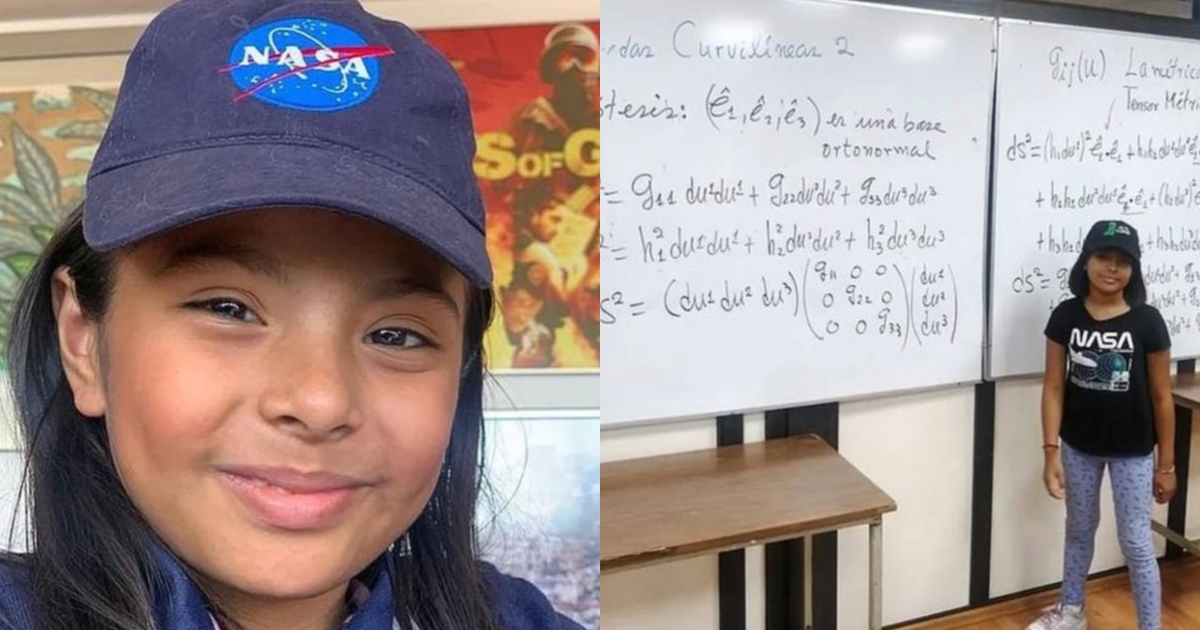 NASA
S OF G
Curvilíneas 2
(ê₁, ê₂, ê₃) es una base
ortonormal
= g₁₁ du¹du¹ + g₂₂du²du² + g₃₃du³du³
= h₁²du¹du¹ + h₂²du²du² + h₃²du³du³
s² = (du¹ du² du³) (g₁₁ 0 0 / 0 g₂₂ 0 / 0 0 g₃₃) (du¹ / du² / du³)
gᵢⱼ(u) La métric
Tensor Métr
ds² = (h₁du¹)² ê₁·ê₁ + h₁h₂du¹du²ê₁
+ h₂h₁du²du¹ê₂·ê₁ + (h₂du²)
ds² =
NASA